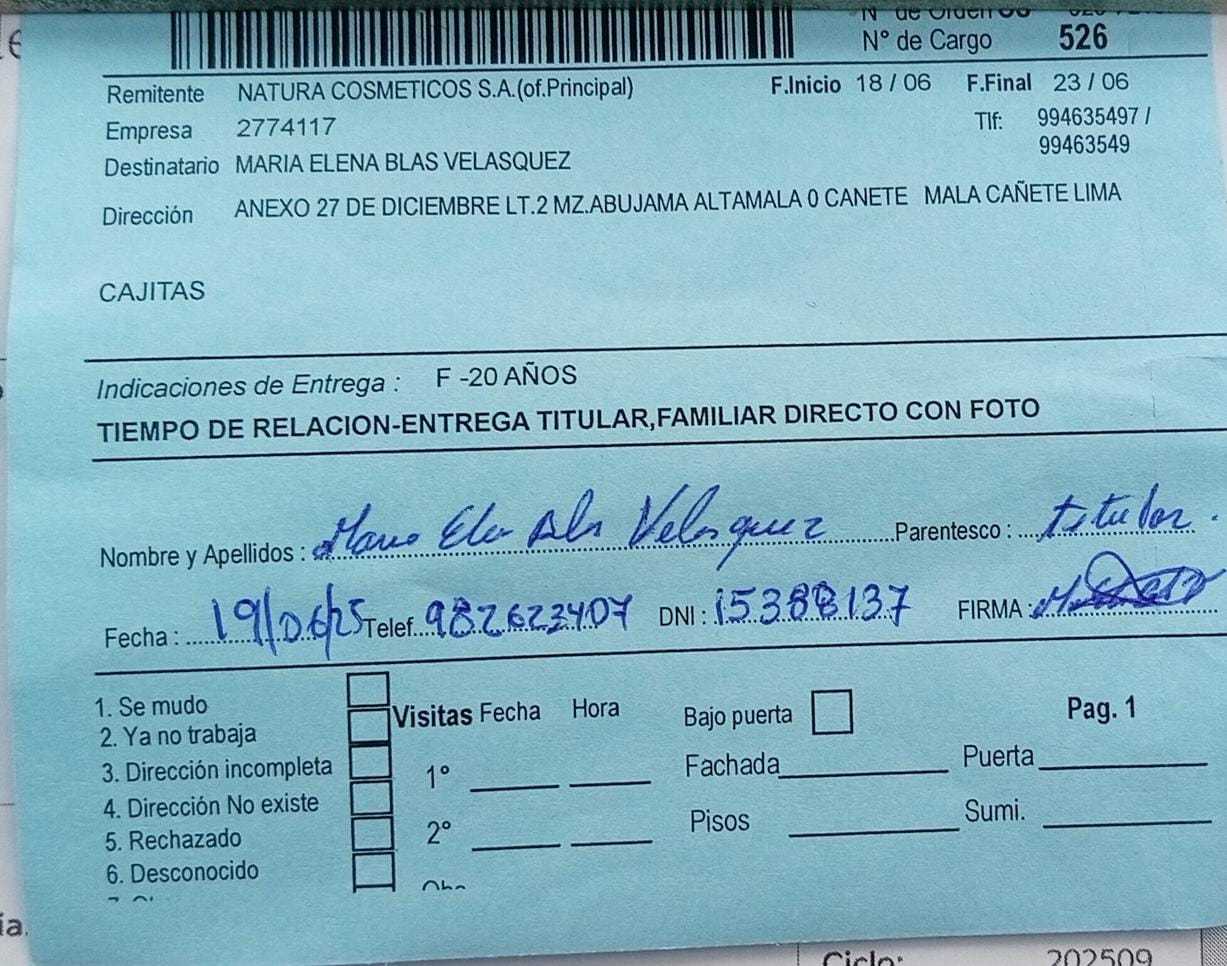 N° de Cargo 526
Remitente NATURA COSMETICOS S.A.(of.Principal) F.Inicio 18 / 06 F.Final 23 / 06
Empresa 2774117 Tlf: 994635497 /
99463549
Destinatario MARIA ELENA BLAS VELASQUEZ
Dirección ANEXO 27 DE DICIEMBRE LT.2 MZ.ABUJAMA ALTAMALA 0 CANETE MALA CAÑETE LIMA
CAJITAS
Indicaciones de Entrega : F -20 AÑOS
TIEMPO DE RELACION-ENTREGA TITULAR,FAMILIAR DIRECTO CON FOTO
Nombre y Apellidos : Velasquez Parentesco : titular.
Fecha : 19/06/25 Telef. 982623407 DNI : 15388137 FIRMA :
1. Se mudo
2. Ya no trabaja
3. Dirección incompleta
4. Dirección No existe
5. Rechazado
6. Desconocido
Visitas Fecha Hora
1°
2°
Bajo puerta Pag. 1
Fachada Puerta
Pisos Sumi.
Ciclo: 202509